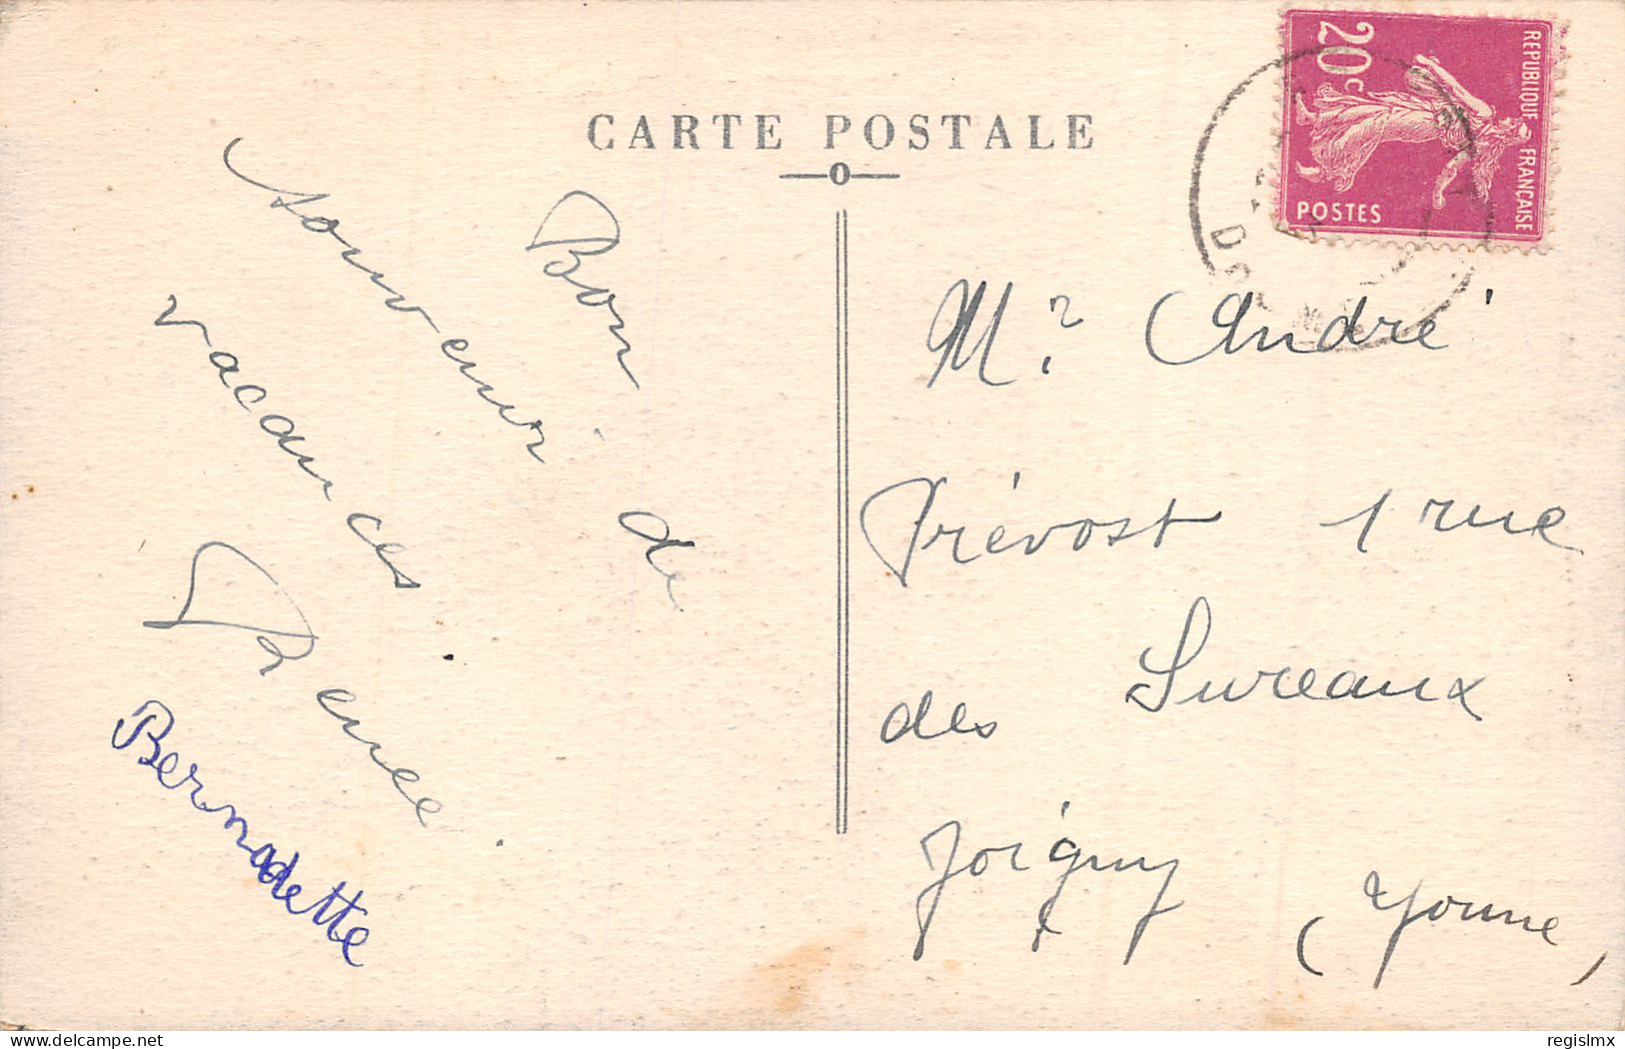 CARTE POSTALE
Bon
souvenir de
vacances.
Renée.
Bernadette
20c
REPUBLIQUE FRANÇAISE
POSTES
Mr André
Prévost 1 rue
des Sureaux
Joigny
(Yonne)
regislmx